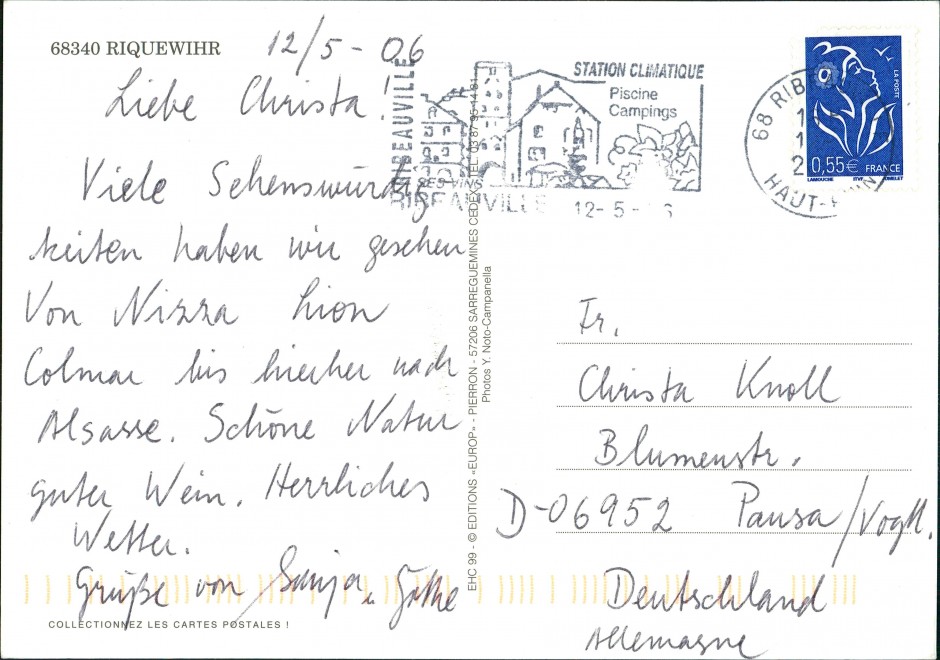 68340 RIQUEWIHR
12/5 - 06
Liebe Christa!
Viele Sehenswürdig
keiten haben wir gesehen
Von Nizza Lion
Colmar bis hierher nach
Alsasse. Schöne Natur
guter Wein. Herrliches
Wetter.
Grüße von Sonja u.
COLLECTIONNEZ LES CARTES POSTALES !
EHC 99 - © EDITIONS «EUROP» - PIERRON - 57206 SARREGUEMINES CEDEX - TEL 03 87 95 14
Photos Y. Noto-Campanella
RIBEAUVILLE
STATION CLIMATIQUE
Piscine
Campings
DES VINS
RIBEAUVILLE 12-5-
68 RIBEAU
HAUT-RHIN
LA POSTE
0,55€ FRANCE
LAMOUCHE
Fr.
Christa Knoll
Blumenstr.
D-06952 Pausa/Vogtl.
Deutschland
Allemagne